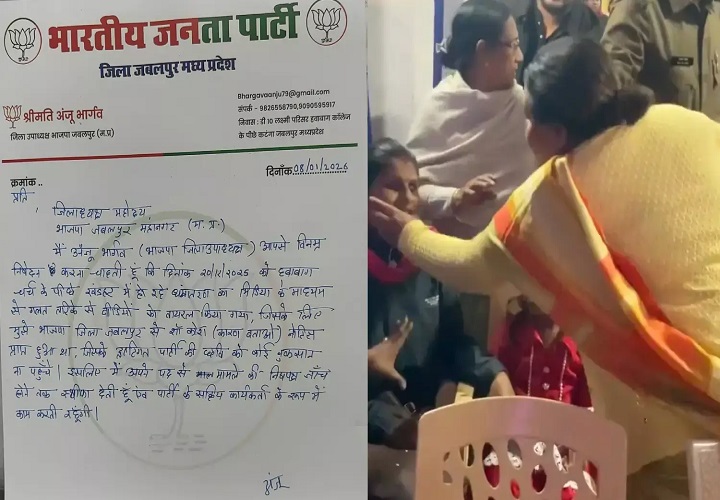 भारतीय जनता पार्टी
जिला जबलपुर मध्य प्रदेश
Bhargavaanju79@gmail.com
श्रीमति अंजू भार्गव
संपर्क - 9826558790,9090595917
जिला उपाध्यक्ष भाजपा जबलपुर (म.प्र)
निवास : डी 10 लक्ष्मी परिसर हवाबाग कॉलेज
के पीछे कटंगा जबलपुर मध्यप्रदेश
क्रमांक ..
दिनाँक 08/01/2026
प्रति
जिलाध्यक्ष महोदय,
भाजपा जबलपुर महानगर (म.प्र.)
में अंजू भार्गव (भाजपा जिलाउपाध्यक्ष) आपसे विनम्र
निवेदन करना चाहती हूं कि दिनांक 20/12/2025 को हवाबाग
चर्च के पीछे खंडहर में हो रहे धर्मांतरण का मिडिया के माध्यम
से गलत तरिके से वीडियो को वायरल किया गया, जिसके लिए
मुझे भाजपा जिला जबलपुर से शो काश (कारण बताओ) नोटिस
प्राप्त हुआ था, जिसके पार्टी की छवि को कोई नुकसान
ना पहुँचे। इसलिए में अपने पद से मामले की निष्पक्ष जाँच
होने तक स्तीफा देती हूं एवं पार्टी के सक्रिय कार्यकर्ता के रूप में
काम करती रहूँगी।
अंजू